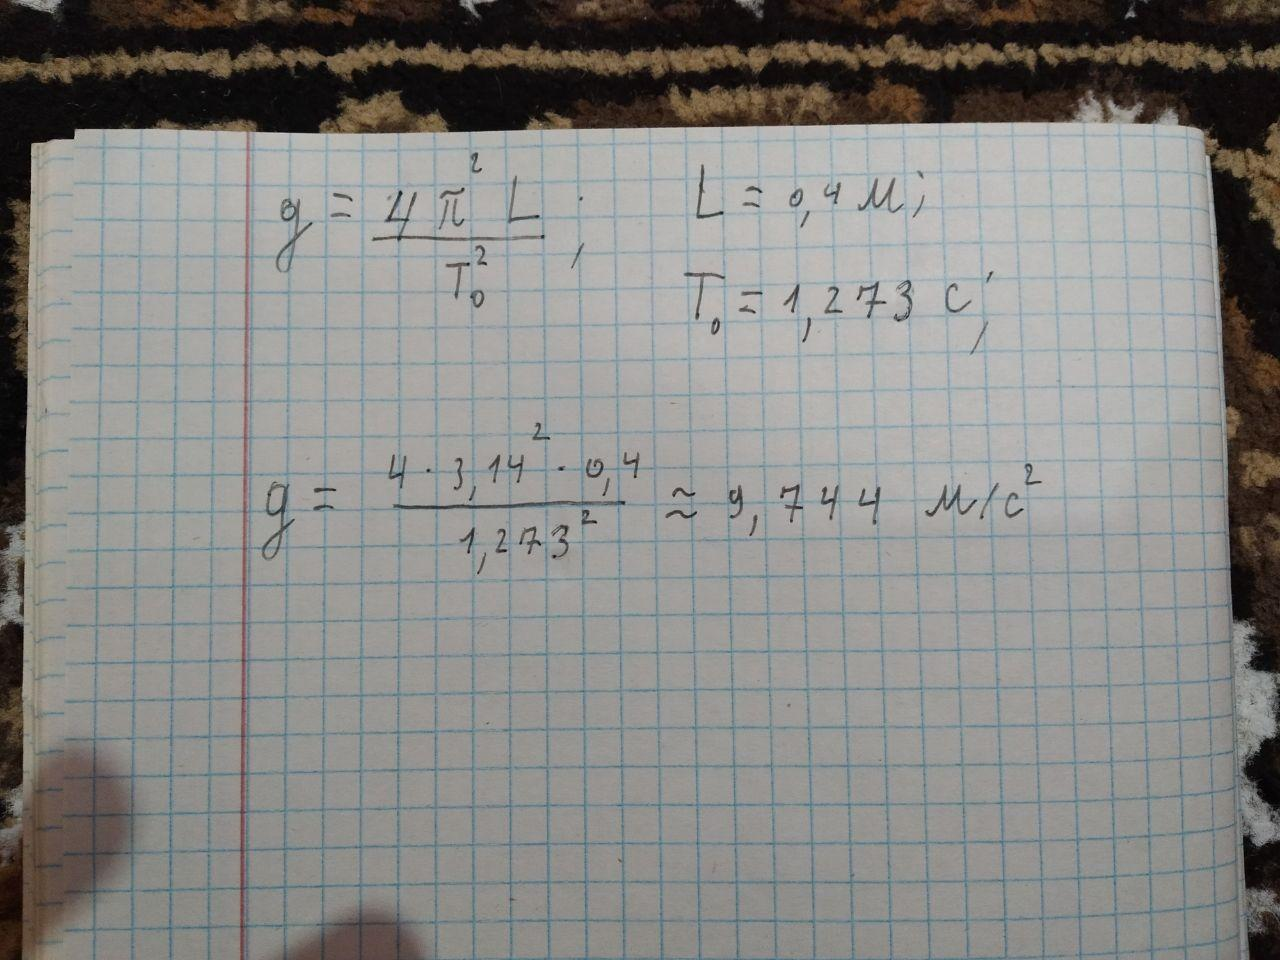 g = 4π² L / T₀² ; L = 0,4 м;
T₀ = 1,273 с;
g = 4 · 3,14² · 0,4 / 1,273² ≈ 9,744 м/с²